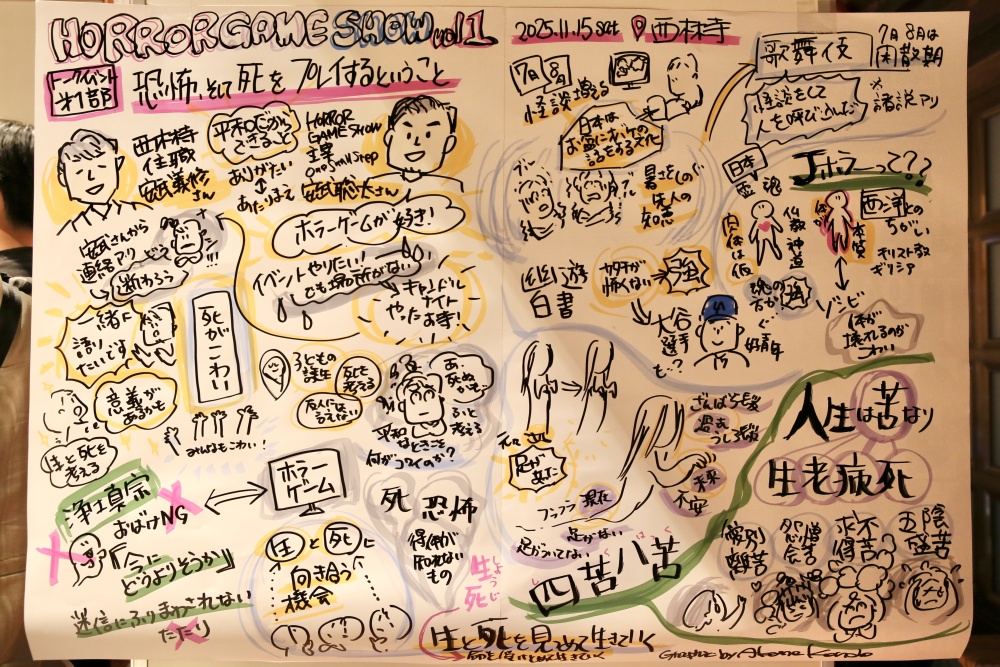 HORROR GAME SHOW vol1
2025.11.15 sat 西林寺
トークイベント
第1部
恐怖、そして死をプレイするということ
西林寺
住職
安武義修
さん
平和だから
できること
ありがたい
あたりまえ
HORROR
GAME SHOW
主宰
安武聡太さん
ホラーゲームが好き!
イベントやりたい!
でも場所がない
キャンドル
ナイト
やったお寺!
安武さんから
連絡アリ
断わろう
一緒に
語り
たいです
意義が
あるかも
生と死を
考える
死がこわい
みんなもこわい!
子どもの
誕生
死を
考える
友人には
言えない
あ、
死ぬ
かも
平和
なときこそ
考える
何がコワイのか?
浄土真宗
おばけNG
『今に
どうよりそうか』
迷信にふりまわされない
たたり
ホラー
ゲーム
生と死に
向き合う
機会
死 恐怖
得体が
知れない
もの
生死
しょうじ
生と死を見つめて生きていく
7月8月
怪談増える
日本は
お盆にオバケの
話をする文化
暑さをしのぐ
先人の
知恵
歌舞伎
7月8月は
閑散期
怪談をして
人を呼び込んだ
※諸説アリ
Jホラーって??
日本
霊魂
肉体は仮
仏教
神道
魂の
方が
強
本質
西洋との
ちがい
キリスト教
ギリシア
ゾンビ
体が
壊れるのが
こわい
幽遊
白書
カタチが
怖くない
強
大谷
選手
も…?
好青年
元々は
足があった
ざんばら髪
過去
うしろ髪
未来
不安
フラフラ 現在
足がない
足がついてない
四苦八苦
人生は苦なり
生老病死
愛別
離苦
怨憎
会苦
求不
得苦
五陰
盛苦
Graphic by Akane Kando